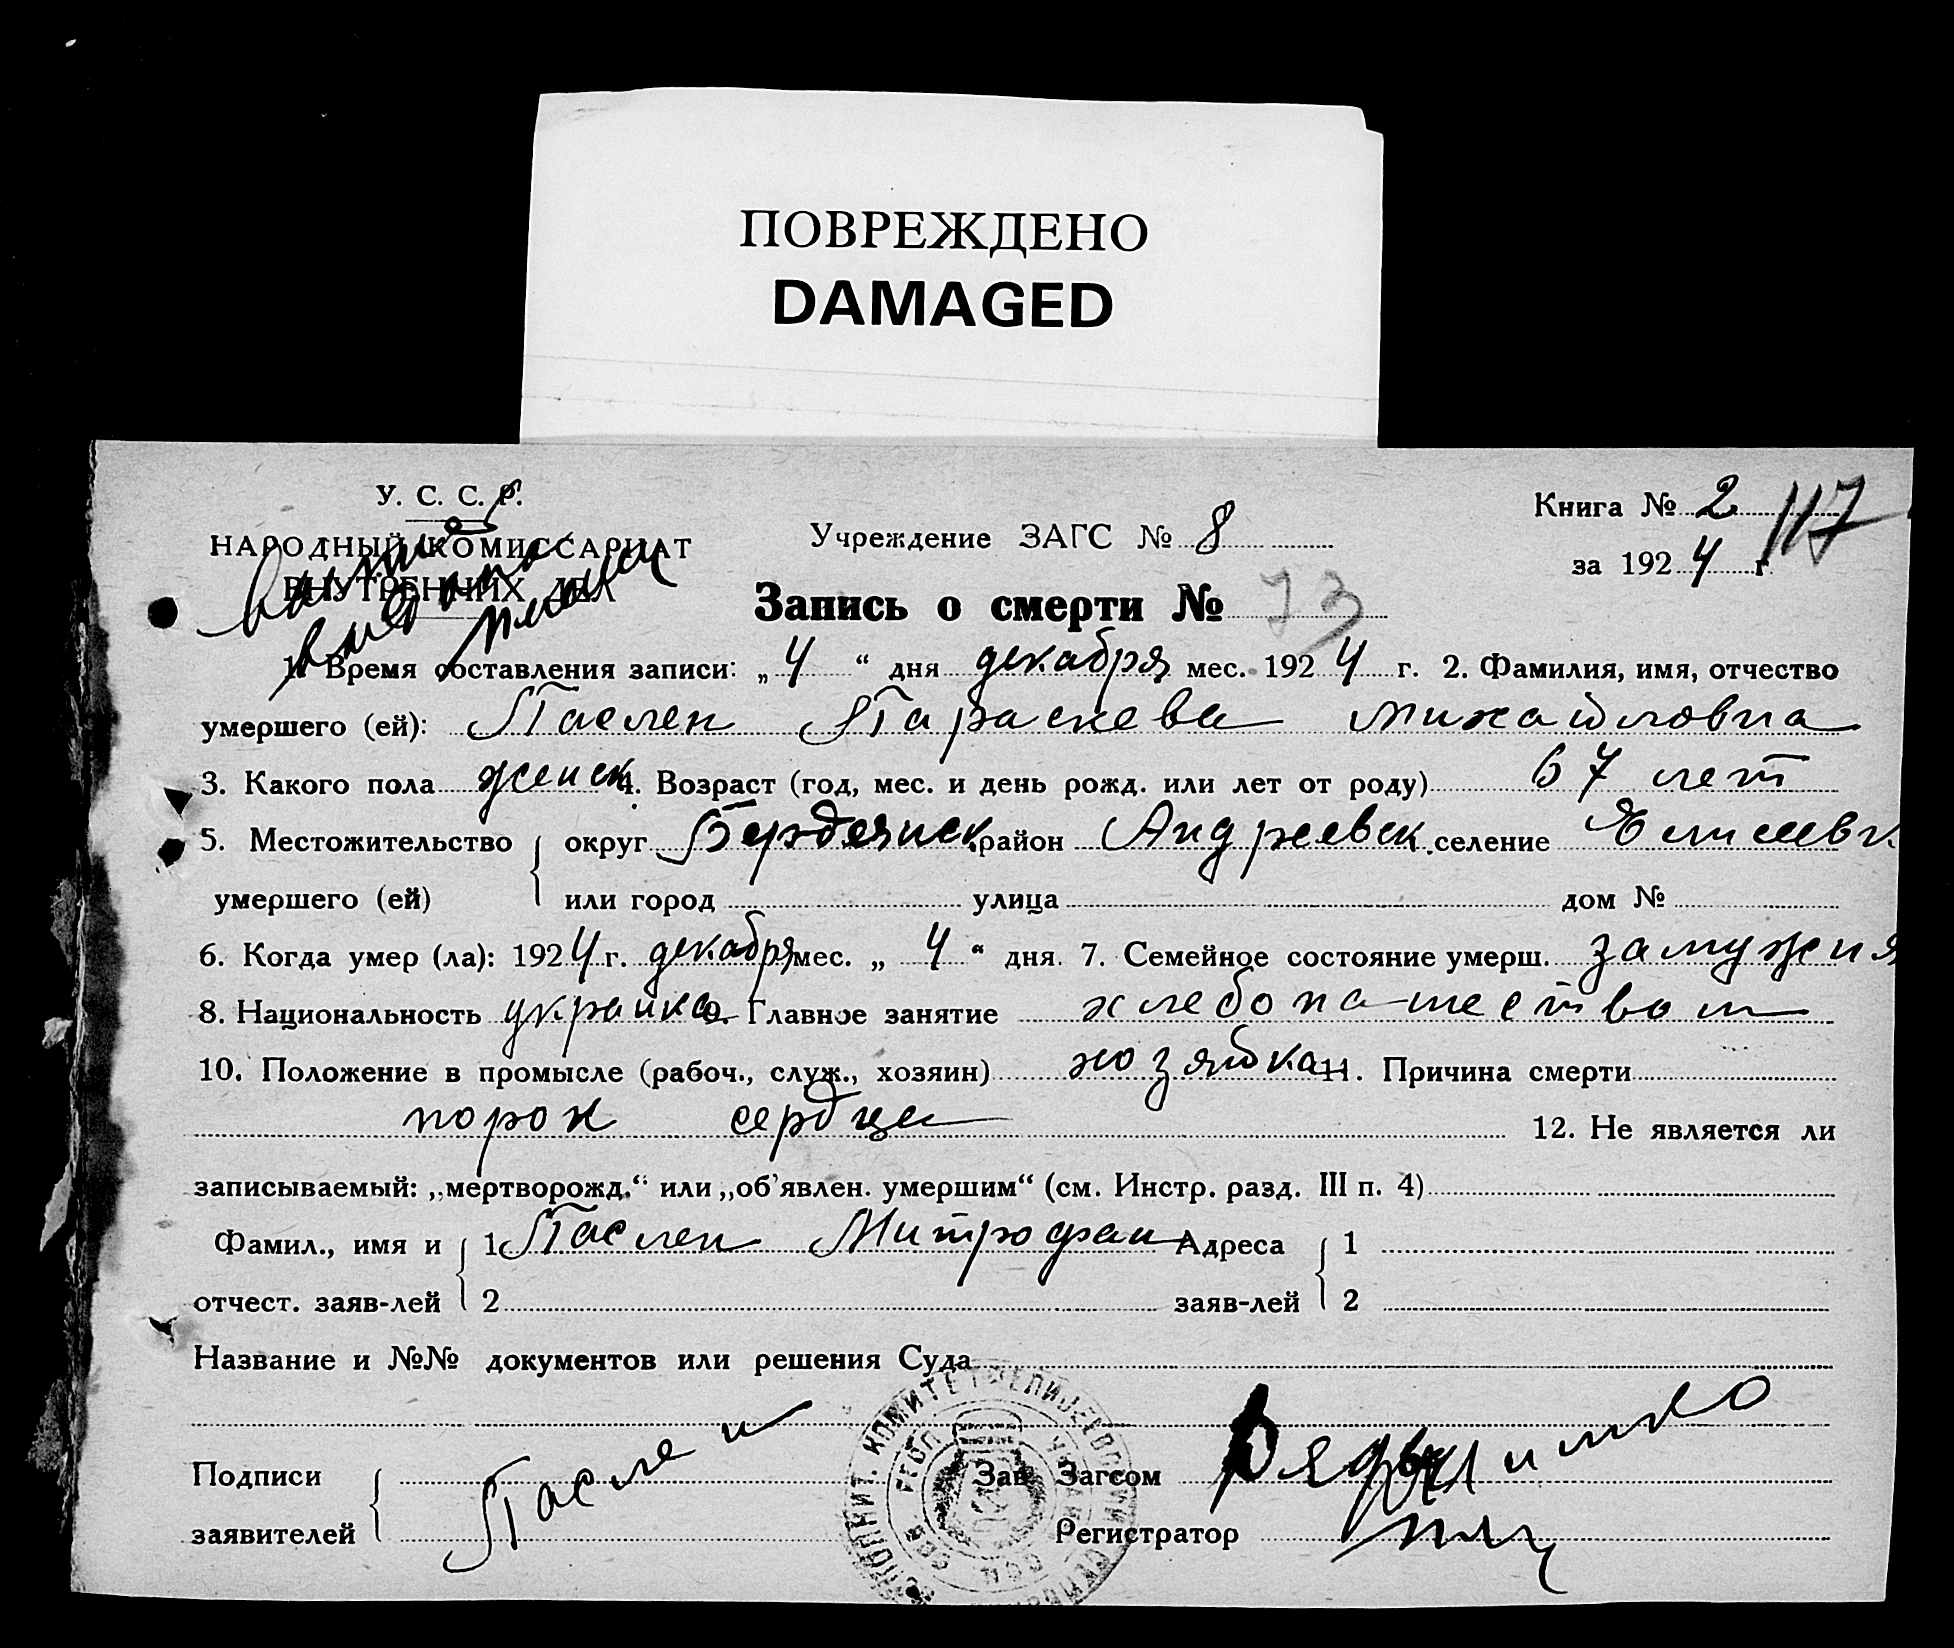 ПОВРЕЖДЕНО
DAMAGED
У. С. С. Р.
НАРОДНЫЙ КОМИССАРИАТ
ВНУТРЕННИХ ДЕЛ
Учреждение ЗАГС № 8
Книга № 2 117
за 1924 г.
Запись о смерти № 73
1. Время составления записи: „4“ дня декабря мес. 1924 г. 2. Фамилия, имя, отчество
умершего (ей): Паслен Параскева Михайловна
3. Какого пола женск 4. Возраст (год, мес. и день рожд. или лет от роду) 67 лет
5. Местожительство округ Бердянск район Андреевск. селение
умершего (ей) или город улица дом №
6. Когда умер (ла): 1924 г. декабря мес. „4“ дня. 7. Семейное состояние умерш. замужняя
8. Национальность украинка 9. Главное занятие хлебопашеством
10. Положение в промысле (рабоч., служ., хозяин) хозяйка 11. Причина смерти
порок сердца 12. Не является ли
записываемый: „мертворожд.“ или „об'явлен. умершим“ (см. Инстр. разд. III п. 4)
Фамил., имя и 1 Паслен Митрофан Адреса 1
отчест. заяв-лей 2 заяв-лей 2
Название и №№ документов или решения Суда
Подписи Паслен Зав. Загсом
заявителей Регистратор